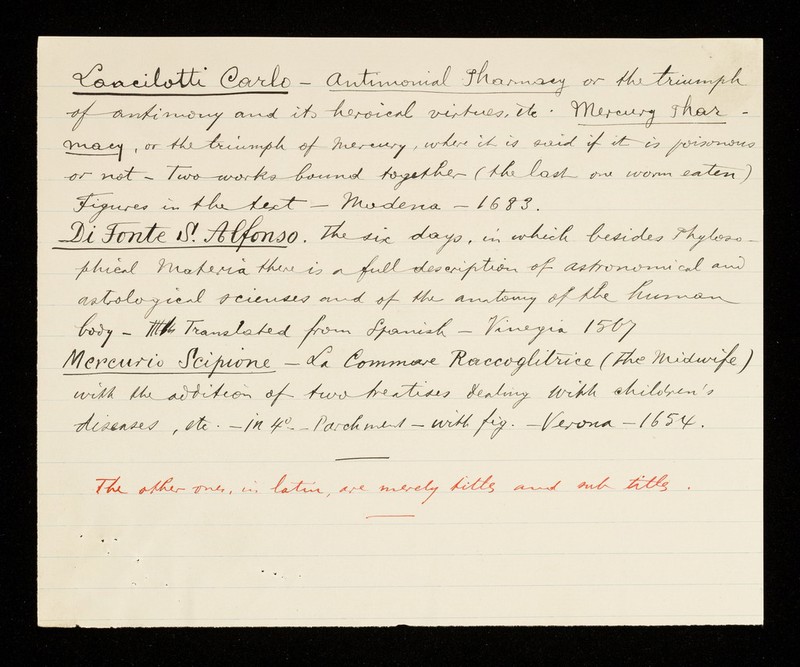 Lancilotti Carlo – Antimonial Pharmacy or the triumph
of antimony and its heroical virtues, etc. Mercury Phar-
macy, or the triumph of Mercury, where it is said if it is poisonous
or not – Two works bound together (the last one worm eaten)
Figures in the text – Modena – 1683.
Di Fonte S. Alfonso. The six days, in which besides Phyloso-
phical Materia there is a full description of astronomical and
astrological sciences and of the anatomy of the human
body – Translated from Spanish – Vinegia 1567
Mercurio Scipione – La Commare Raccoglitrice (The Midwife)
with the addition of two treatises dealing with children's
diseases, etc. – in 4º – Parchment – with fig. – Verona – 1654.
The other ones, in latin, are merely titles and sub titles.